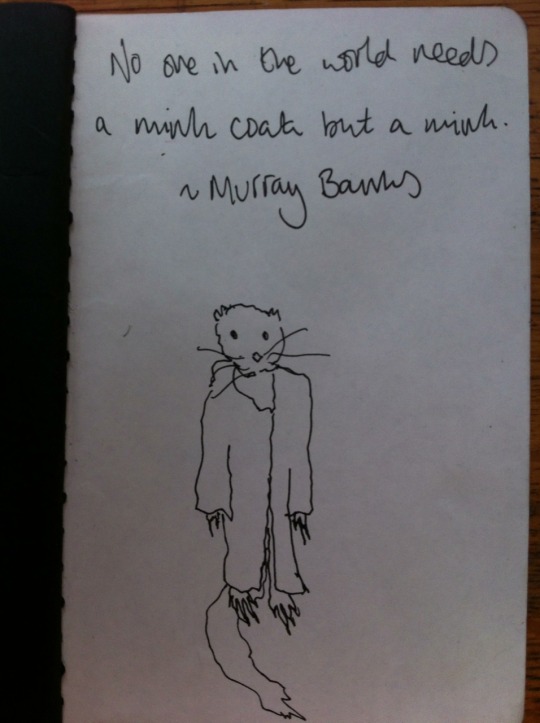 No one in the world needs
a mink coat but a mink.
~ Murray Banks